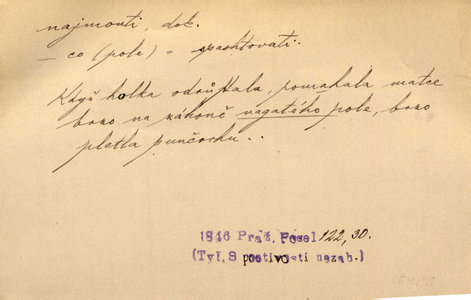 najmouti, dok.
– co (pole) = spachtovati.
Když holka odrůstala, pomáhala matce
brzo na záhoně najatého pole, brzo
pletla punčochu..
1846 Praž. Posel 122, 30.
(Tyl, S poctivostí nezah.)